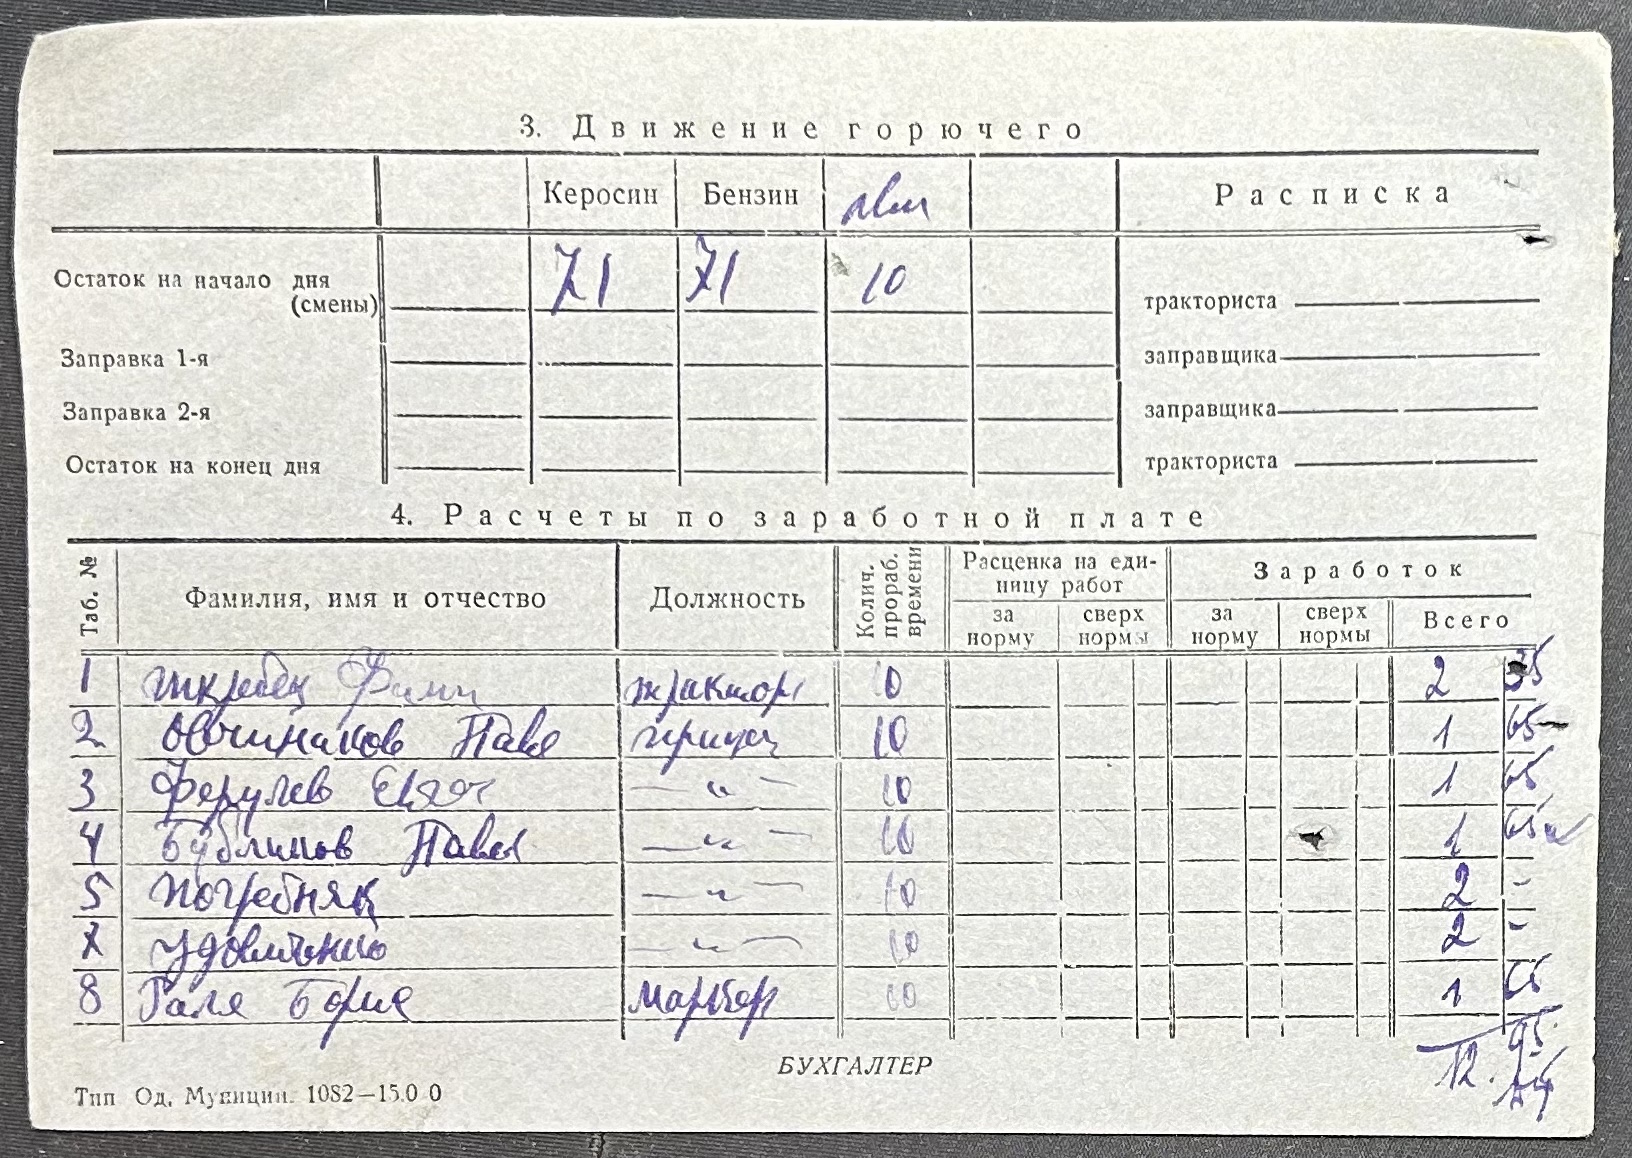 3. Движение горючего
Керосин Бензин Расписка
Остаток на начало дня (смены) 71 71 10 тракториста
Заправка 1-я заправщика
Заправка 2-я заправщика
Остаток на конец дня тракториста
4. Расчеты по заработной плате
Таб. № Фамилия, имя и отчество Должность Колич. прораб. времени Расценка на единицу работ Заработок
за норму сверх нормы за норму сверх нормы Всего
1 трактор 10 2 35
2 Овчинников Павел прицеп 10 1 65
3 Ферулев — " — 10 1 65
4 Бублинов Павел — " — 10 1 65
5 Погребняк — " — 10 2 -
X — " — 10 2 -
8 Галя 10 1 65
12. 95
БУХГАЛТЕР
Тип Од. Муниции. 1082—15.0 0